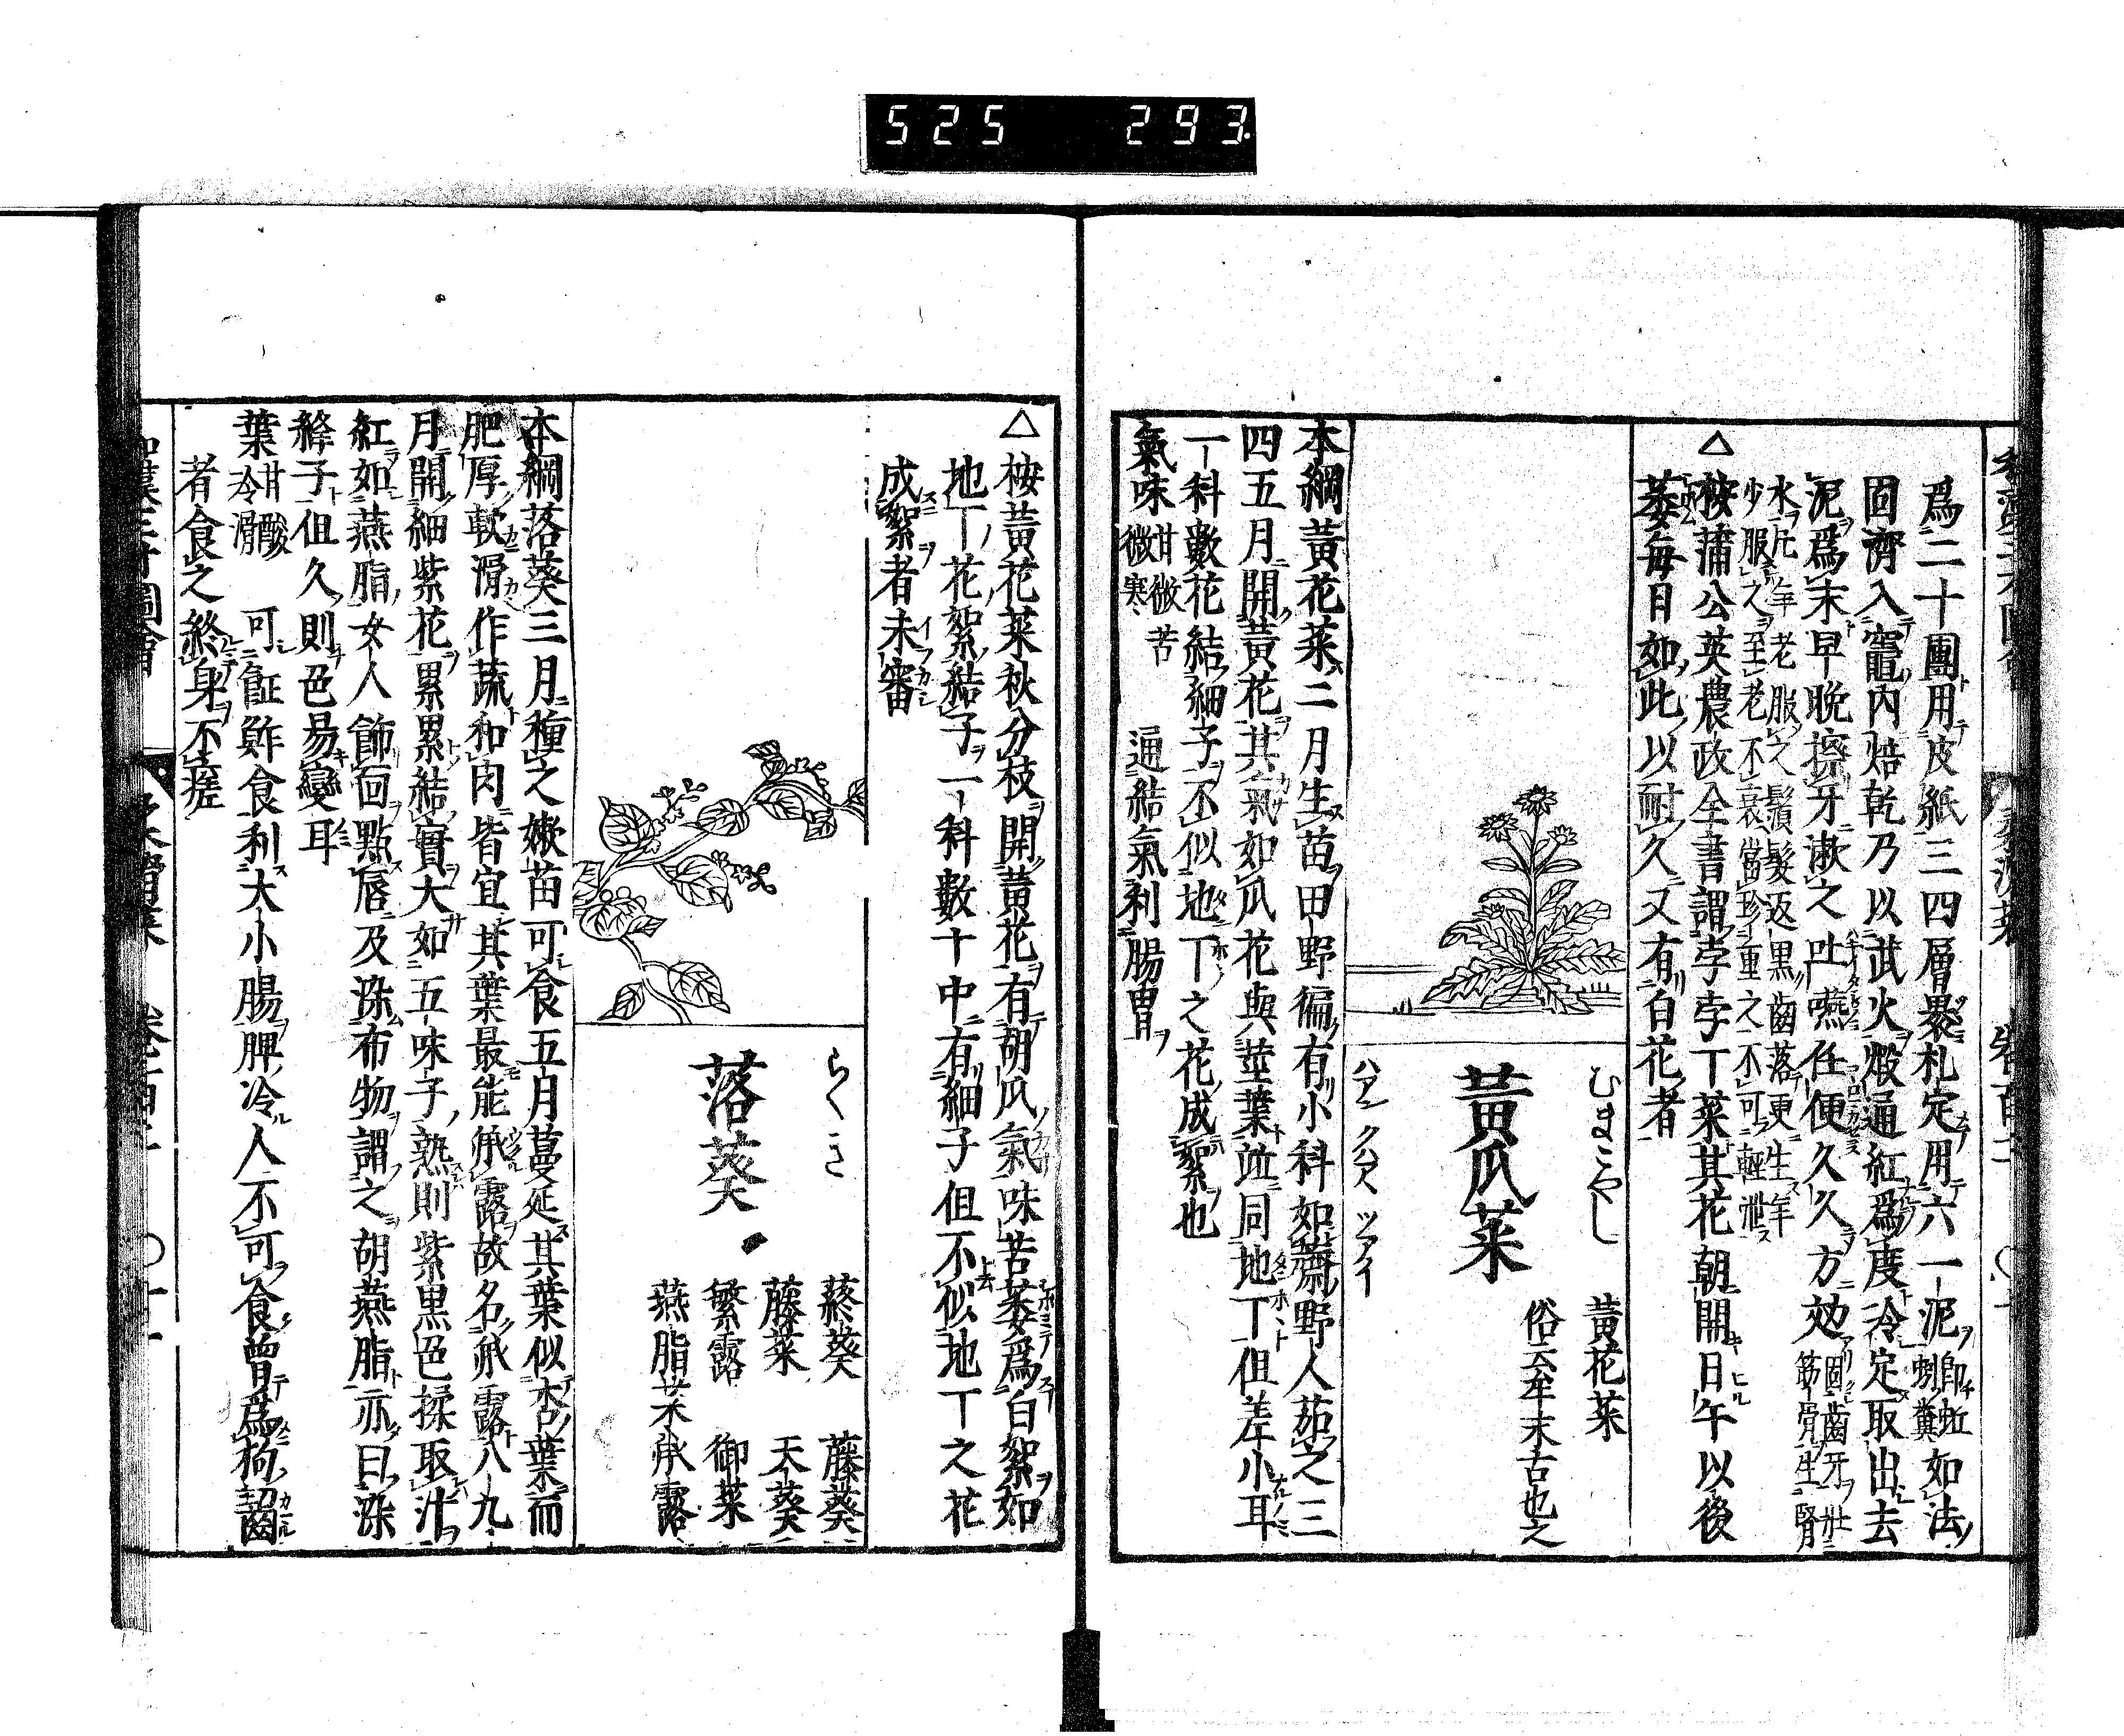 525 293
爲二十團用皮紙三四層褁札定用六一泥卽蚯蚓糞如法
固濟入竈內焙乾乃以武火煅通紅爲度冷定取出去
泥爲末早晚擦牙漱之吐嚥任便久久方効固齒牙壯筋骨生腎
水凡年老服之鬚髮返黑齒落更生年
少服之至老不衰當珍重之不可輕泄
△
桉蒲公英農政全書謂孛孛丁菜其花朝開日午以後
萎每日如此以耐久又有白花者
むまこやし
黃瓜菜
黃花菜
俗云牟末古也之
ハアン クハアヽ ツアイ
本綱黃花菜二月生苗田野徧有小科如薺野人茹之三
四五月開黃花其氣如瓜花與莖葉竝同地丁但差小耳
一科數花結細子不似地丁之花成絮也
氣味甘微苦微寒 通結氣利腸胃
△
桉黃花菜秋分枝開黃花有胡瓜氣味苦萎爲白絮如
地丁花絮結子一科數十中有細子但不似地丁之花
成絮者未審
らくき
落葵
蔠葵 藤葵
藤菜 天葵
繁露 御菜
燕脂菜 承露
本綱落葵三月種之嫩苗可食五月蔓延其葉似杏葉而
肥厚軟滑作蔬和肉皆宜其葉最能承露故名承露八九
月開細紫花累累結實大如五味子熟則紫黑色揉取汁
紅如燕脂女人飾面點唇及染布物謂之胡燕脂亦曰染
絳子但久則色易變耳
葉甘酸冷滑 可𩜾鮓食利大小腸脾冷人不可食曾爲狗齧
者食之終身不瘥